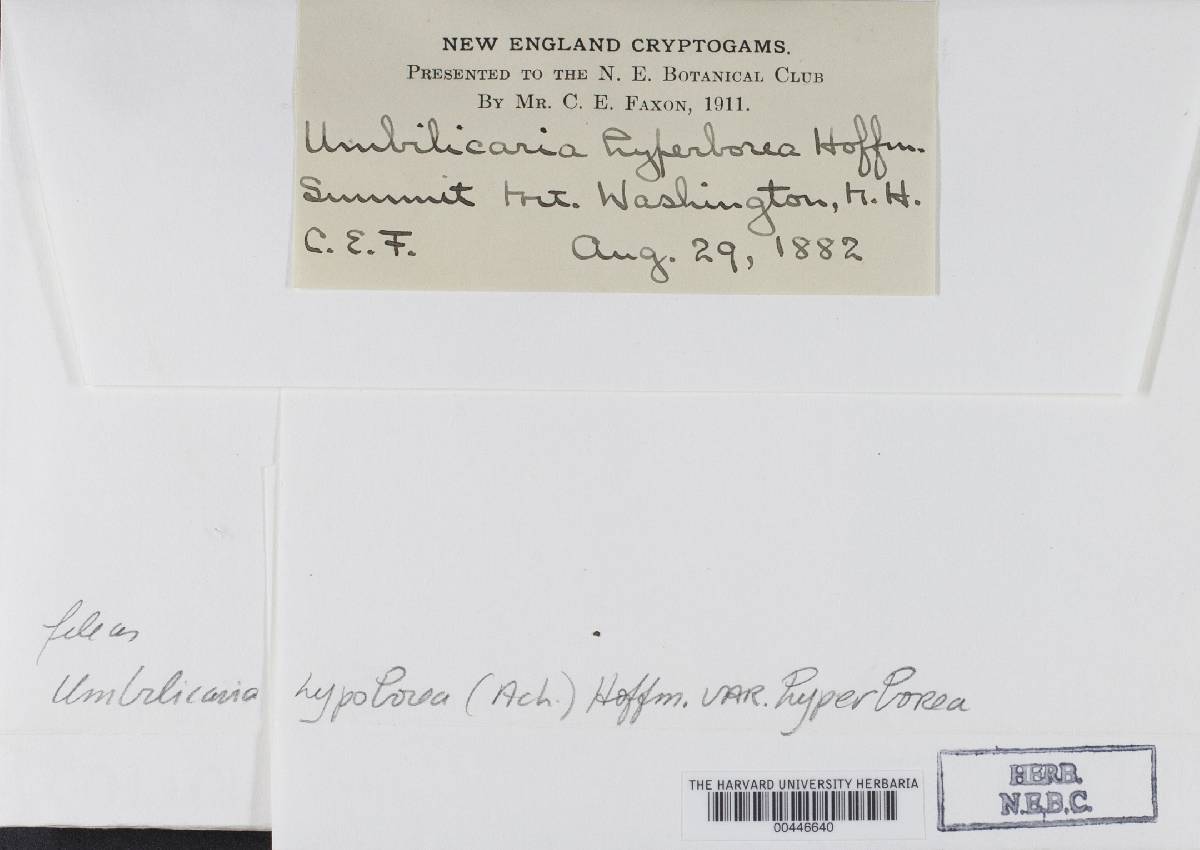 NEW ENGLAND CRYPTOGAMS.
PRESENTED TO THE N. E. BOTANICAL CLUB
BY MR. C. E. FAXON, 1911.
Umbilicaria hyperborea Hoffm.
Summit Mt. Washington, N. H.
C. E. F. Aug. 29, 1882
file as
Umbilicaria hypoborea (Ach.) Hoffm. VAR. hyperborea
THE HARVARD UNIVERSITY HERBARIA
00446640
HERB.
N.E.B.C.